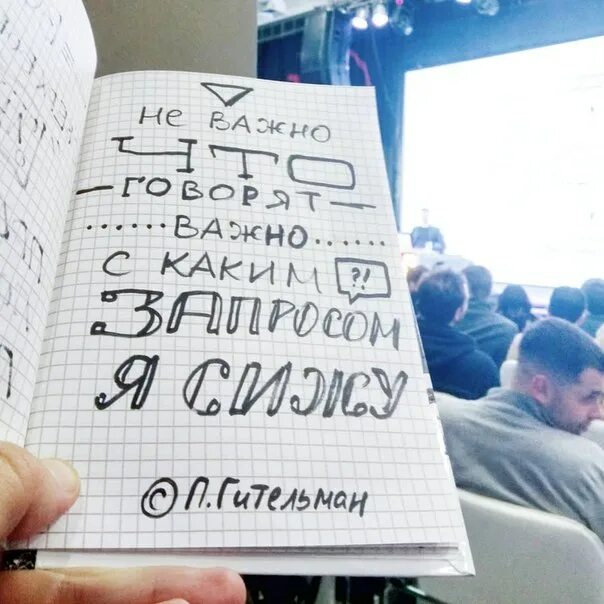 Не ВАЖНО
ЧТО
–ГОВОРЯТ–
......ВАЖНО......
С КАКИМ ?!
ЗАПРОСОМ
Я СИЖУ
© П.Гительман